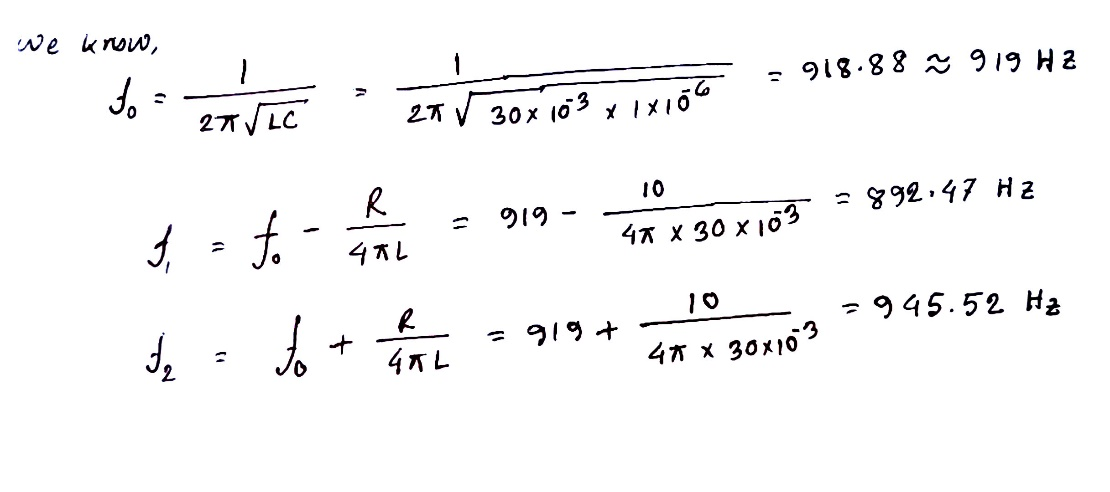 we know,
f₀ = 1/(2π√LC) = 1/(2π√(30 × 10⁻³ × 1 × 10⁻⁶)) = 918.88 ≈ 919 HZ
f₁ = f₀ - R/(4πL) = 919 - 10/(4π × 30 × 10⁻³) = 892.47 HZ
f₂ = f₀ + R/(4πL) = 919 + 10/(4π × 30×10⁻³) = 945.52 Hz